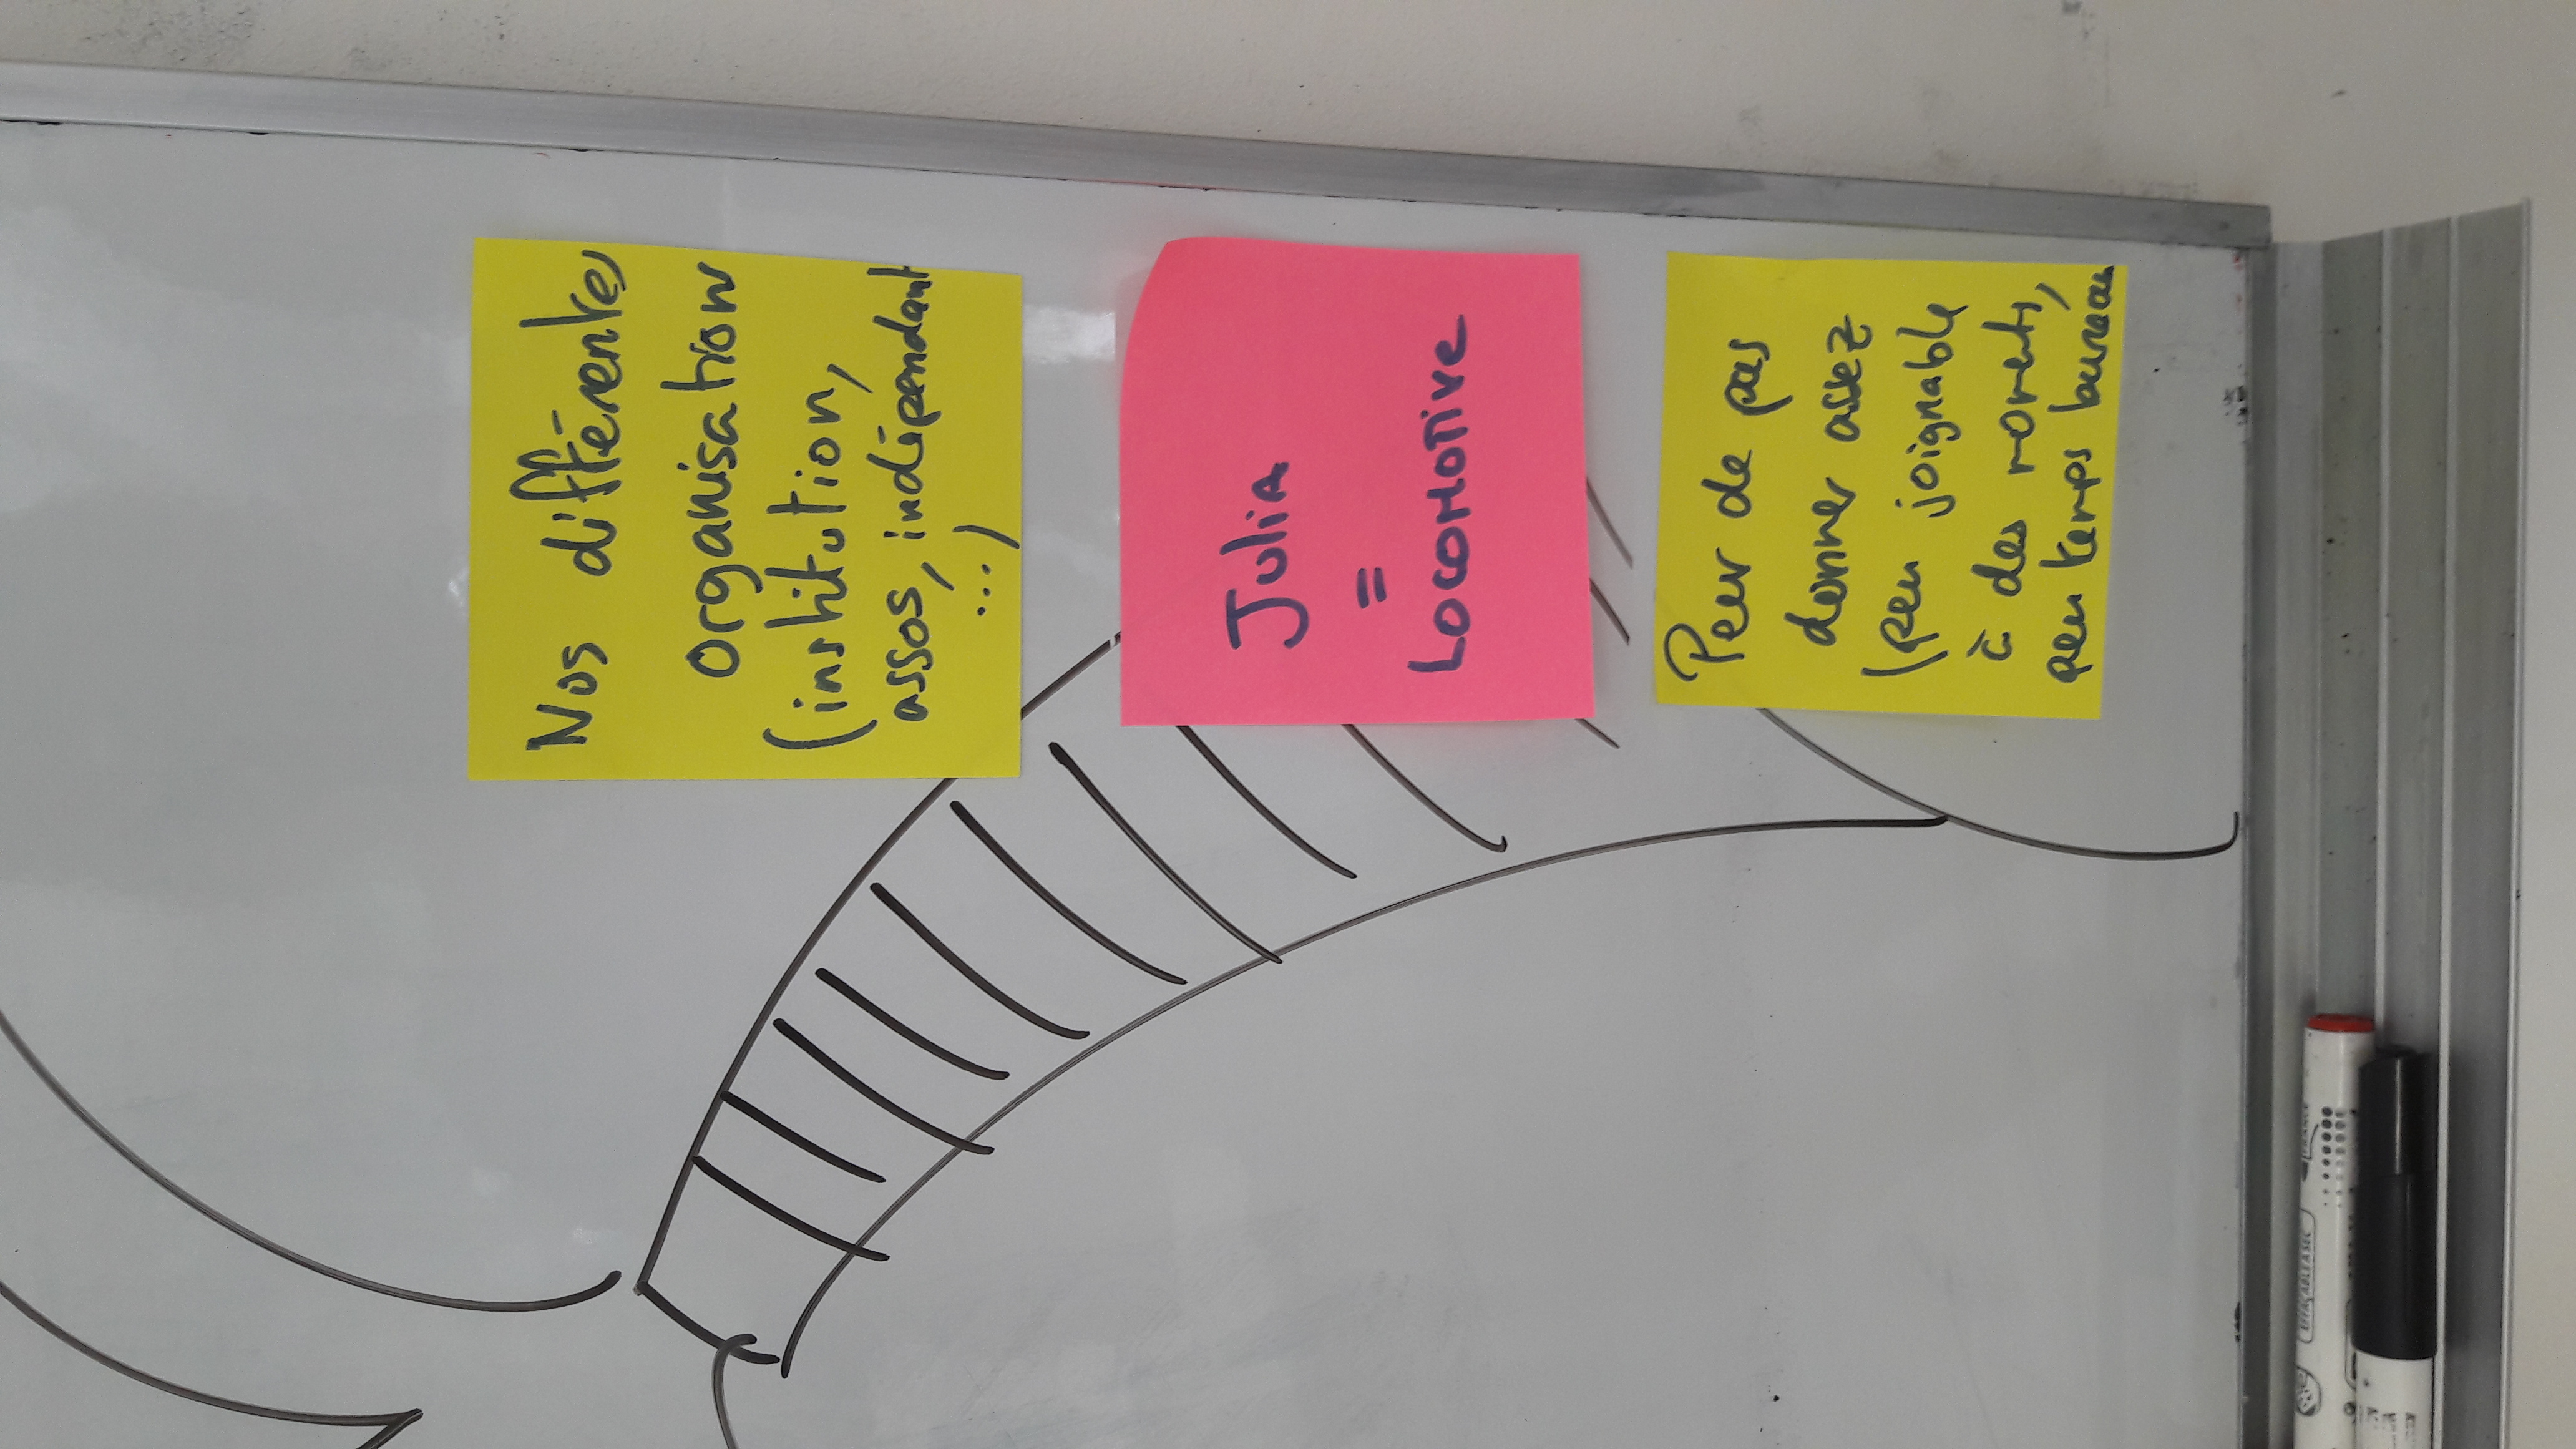 Nos différentes
organisations
(institution,
assos, indépendant
...)
Julia
=
Locomotive
Peur de pas
donner assez
(peu joignable
à des moments,
peu temps bureau
EFFAÇABLE A SEC
FRANCE